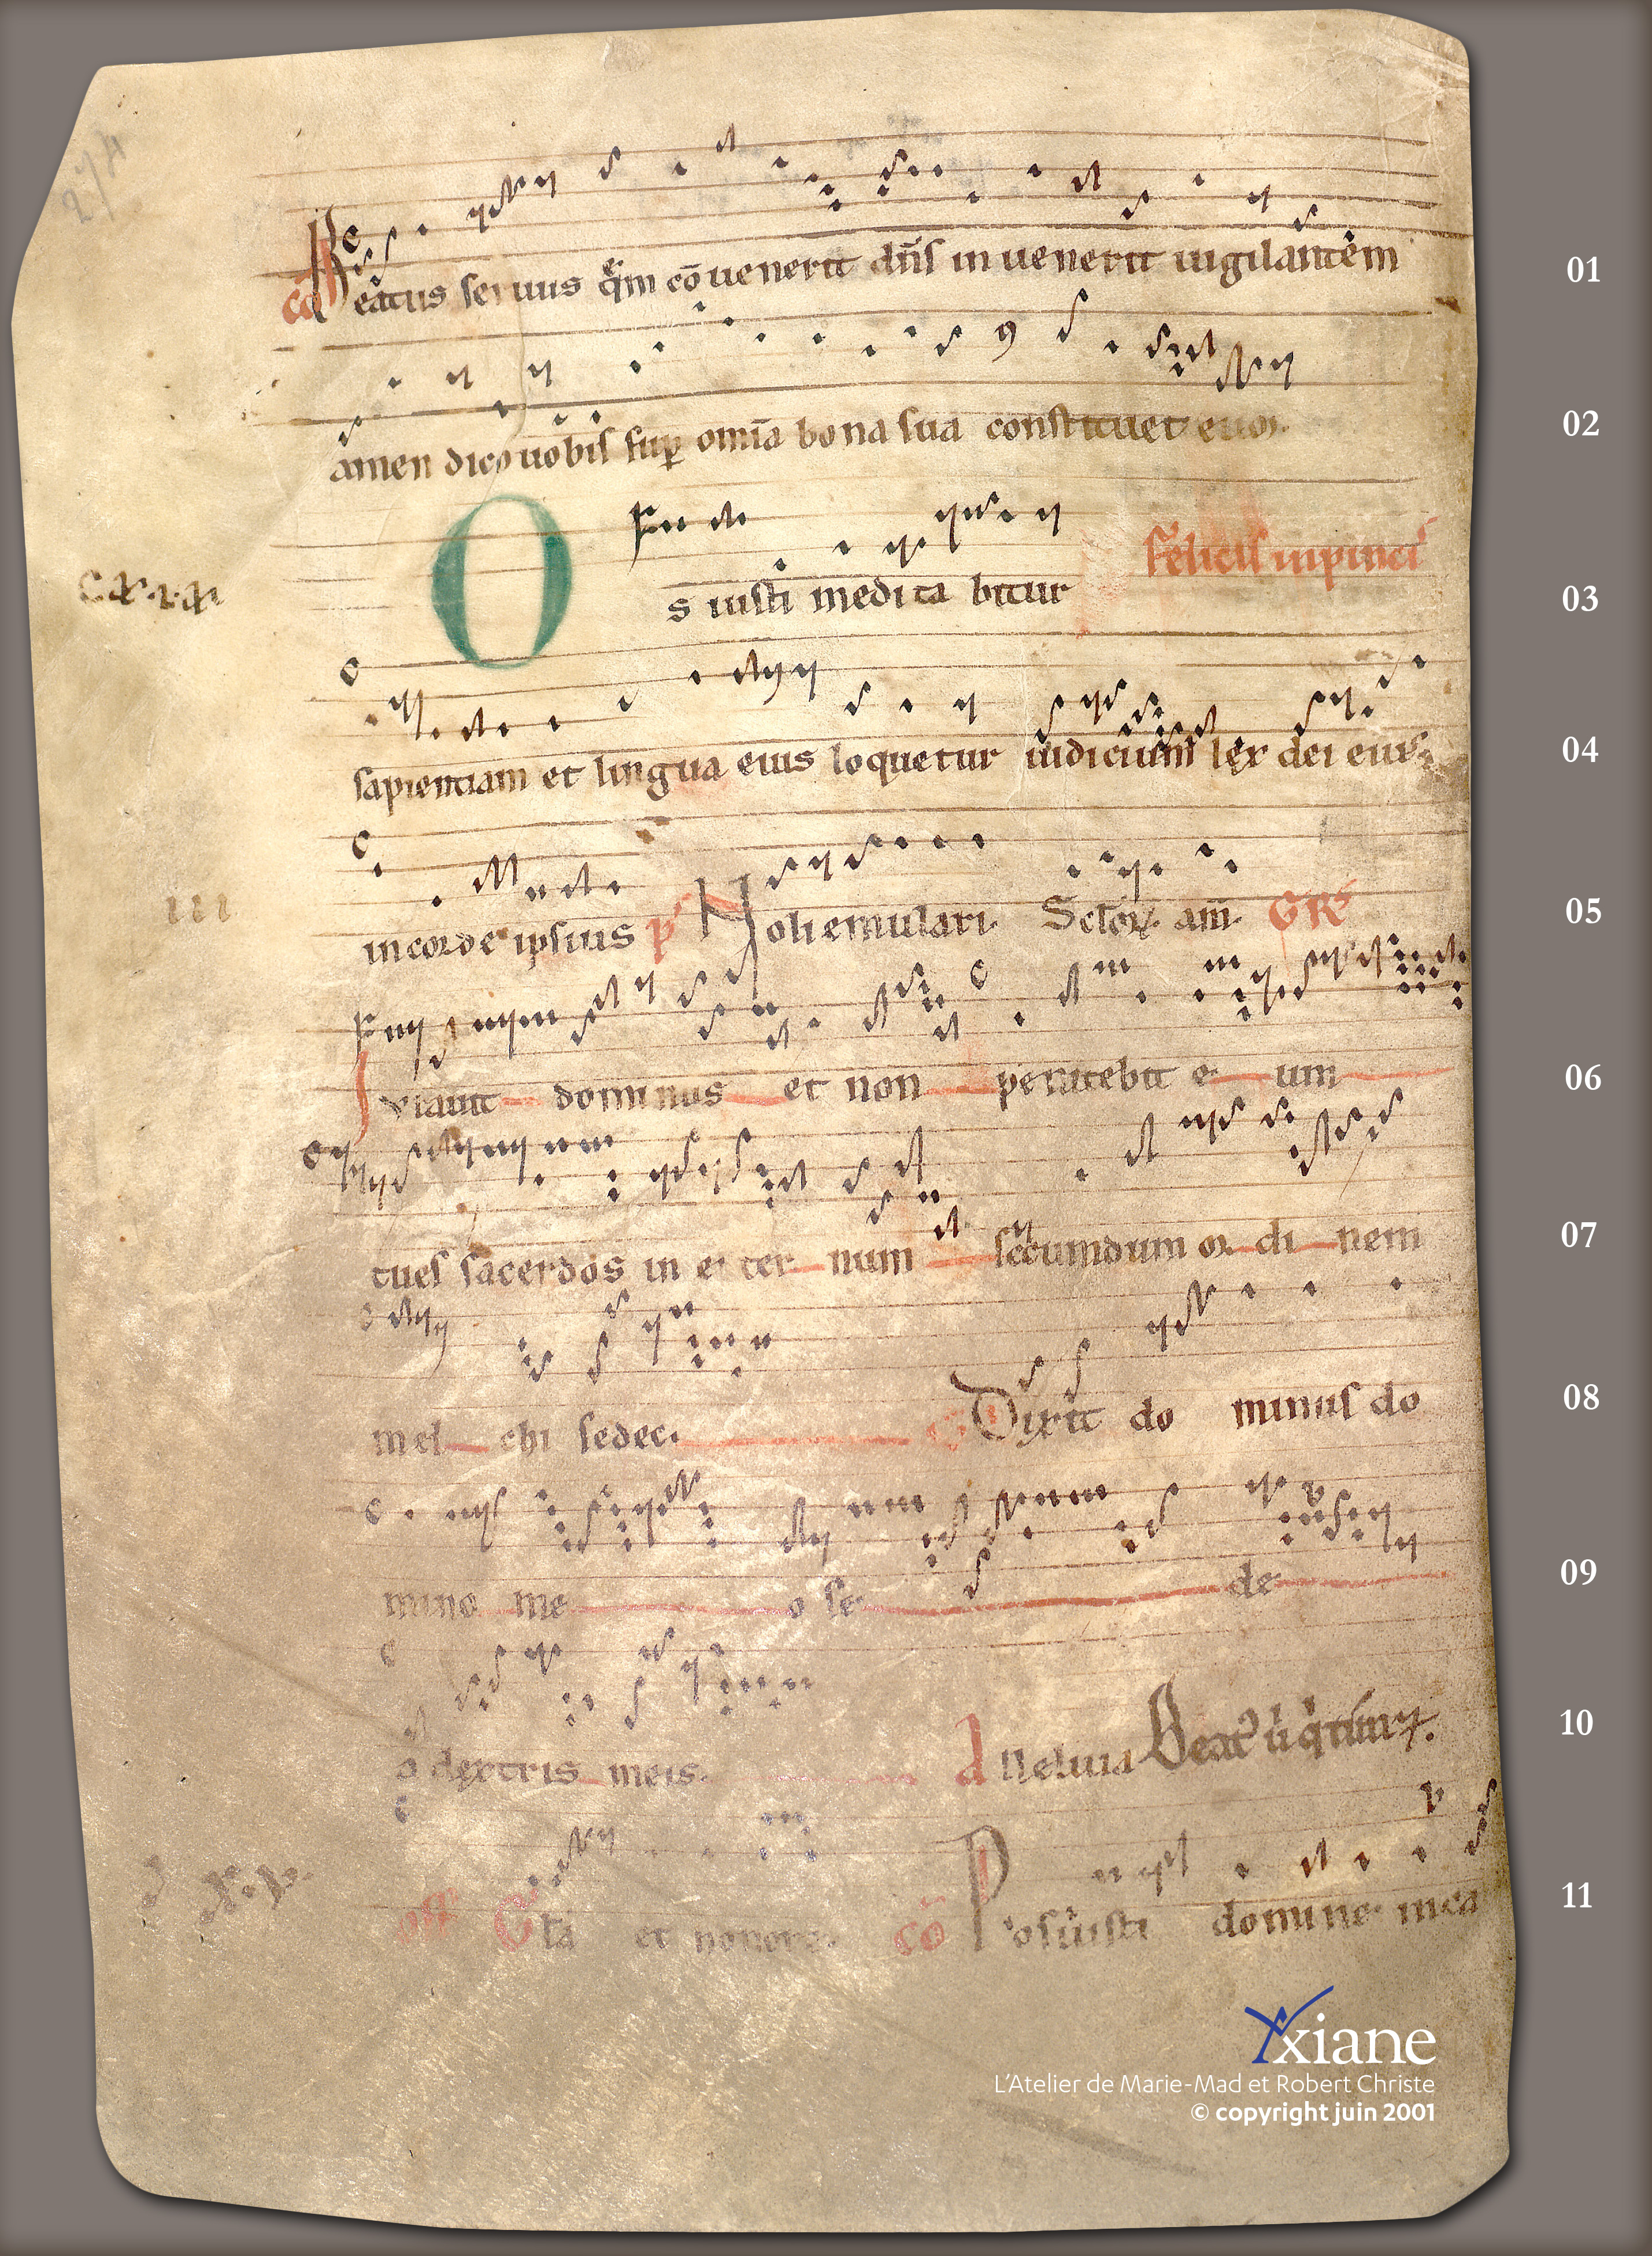 co Beatus seruus qem cō uenerit dn̄s in uenerit uigilantem 01
amen dico uobis sup omīa bona sua constituet euoɿ. 02
O s iusti medita bitur felicis inpincis 03
sapientiam et lingua eius loquetur iudicium lex dei eius 04
in corde ipsius p Noli emulari. Sctoꝝ am̄. GR 05
Iurauit dominus et non penitebit e um 06
tu es sacerdos in e ter num secundum or di nem 07
mel chi sedec. Dixit do minus do 08
mino me o se de 09
a dextris meis. alleluia Beat' uir q timꝫ. 10
off Gła et honore. cō Posuisti domine in ca 11
III
yxiane
L'Atelier de Marie-Mad et Robert Christe
© copyright juin 2001